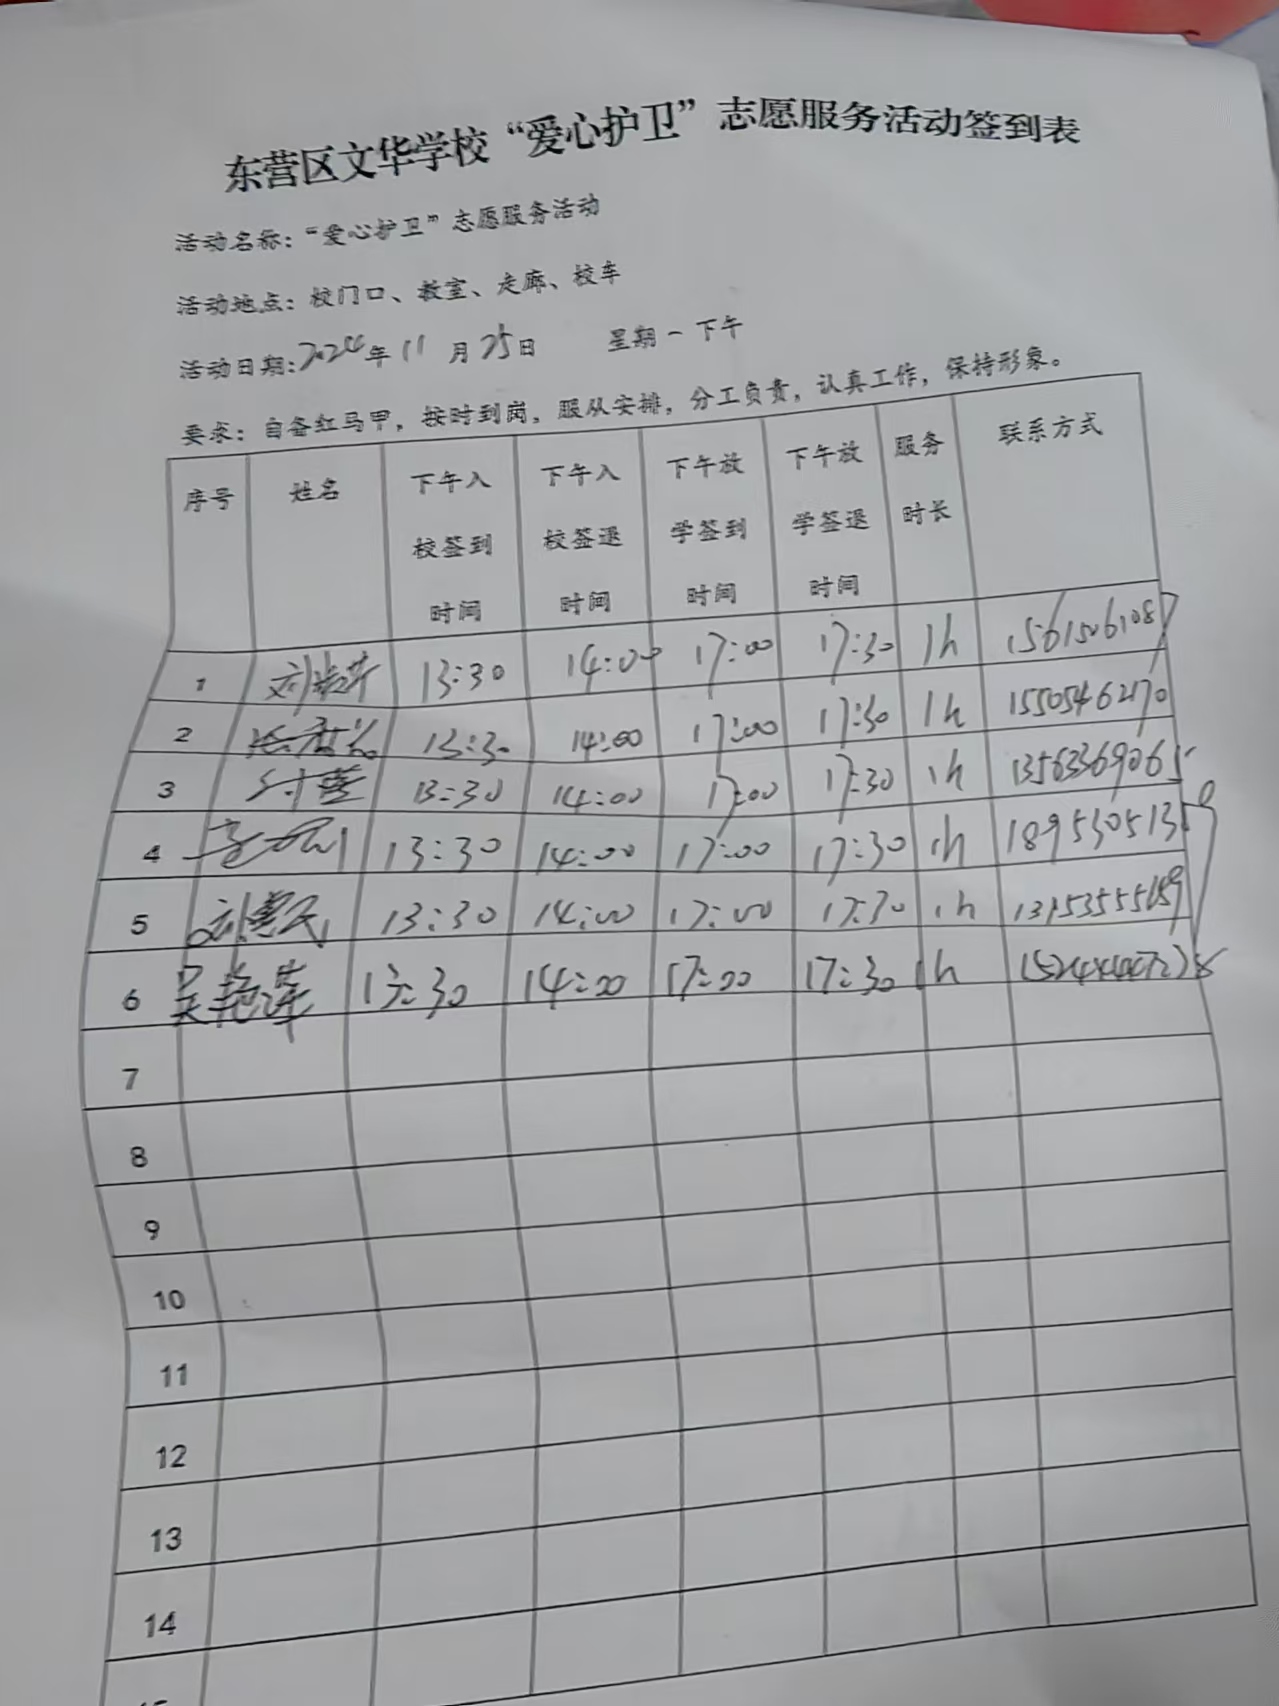 东营区文华学校“爱心护卫”志愿服务活动签到表
活动名称：“爱心护卫”志愿服务活动
活动地点：校门口、教室、走廊、校车
活动日期：2024年11月25日 星期一下午
要求：自备红马甲，按时到岗，服从安排，分工负责，认真工作，保持形象。
序号 姓名 下午入校签到时间 下午入校签退时间 下午放学签到时间 下午放学签退时间 服务时长 联系方式
1 13:30 14:00 17:00 17:30 1h 15615061087
2 13:30 14:00 17:00 17:30 1h 15505462170
3 13:30 14:00 17:00 17:30 1h 13563369065
4 13:30 14:00 17:00 17:30 1h
5 13:30 14:00 17:00 17:30 1h
6 吴艳萍 13:30 14:00 17:00 17:30 1h
7
8
9
10
11
12
13
14